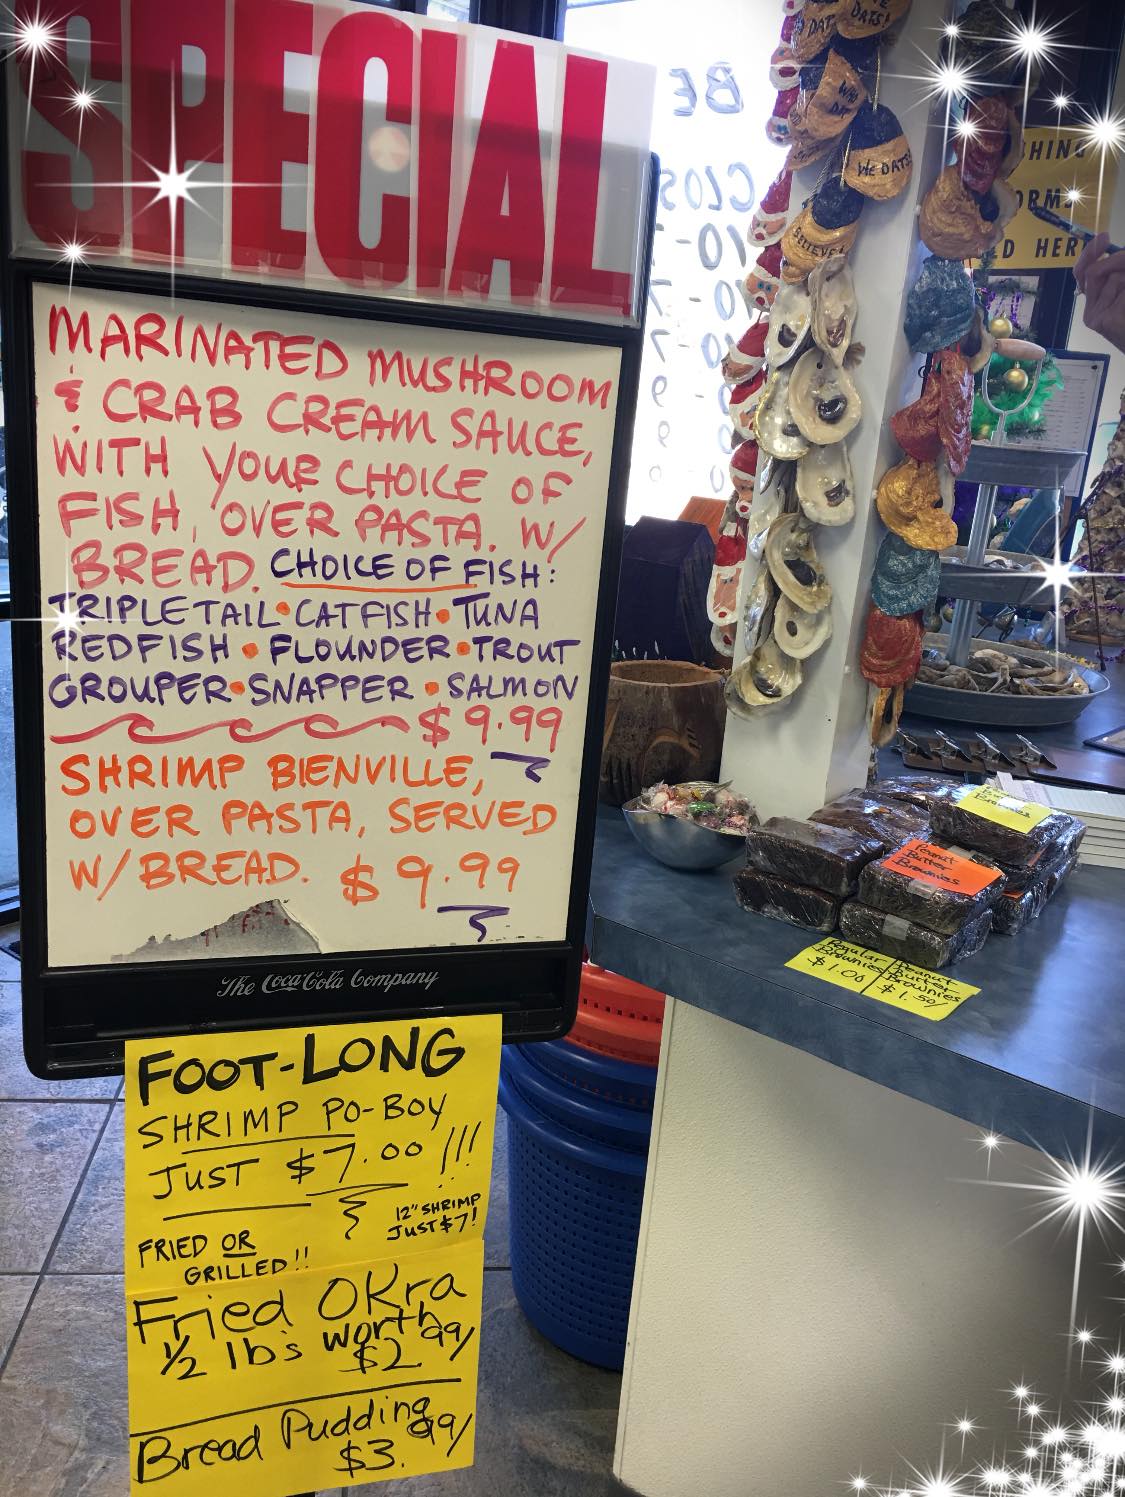 SPECIAL
MARINATED MUSHROOM
& CRAB CREAM SAUCE,
WITH YOUR CHOICE OF
FISH, OVER PASTA. W/
BREAD. CHOICE OF FISH:
TRIPLETAIL • CATFISH • TUNA
REDFISH • FLOUNDER • TROUT
GROUPER • SNAPPER • SALMON
$9.99
SHRIMP BIENVILLE,
OVER PASTA, SERVED
W/BREAD. $9.99
The Coca-Cola Company
FOOT-LONG
SHRIMP PO-BOY
JUST $7.00 !!!
12" SHRIMP
JUST $7!
FRIED OR
GRILLED!!
Fried OKra
1/2 lbs worth
$2.99/
Bread Pudding
$3.99/
WHO
DAT
WE DATS!
BELIEVE!
Brownies
Peanut
Butter
Brownies
Regular
Brownies
$1.00
Peanut
Butter
Brownies
$1.50/